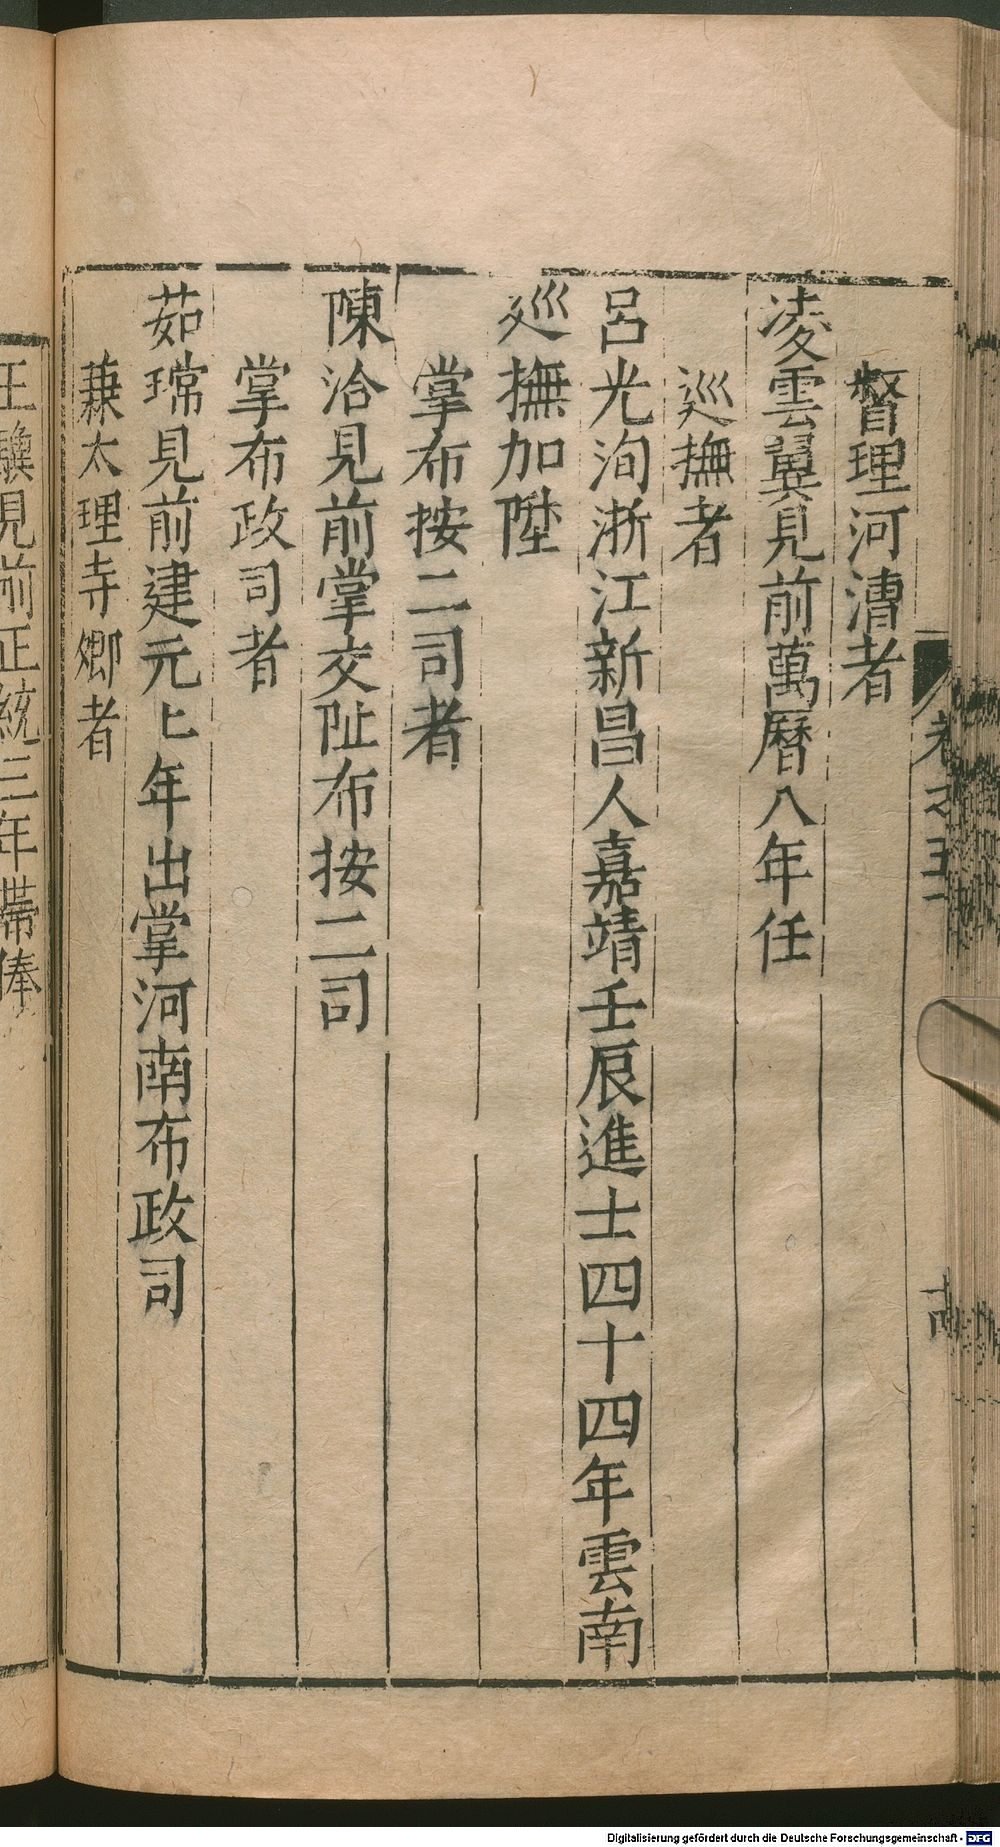 督理河漕者
凌雲翼見前萬曆八年任
巡撫者
呂光洵浙江新昌人嘉靖壬辰進士四十四年雲南
巡撫加陞
掌布按二司者
陳洽見前掌交阯布按二司
掌布政司者
茹瑺見前建元七年出掌河南布政司
蒹太理寺卿者
王驥見前正統三年帶俸
Digitalisierung gefördert durch die Deutsche Forschungsgemeinschaft - DFG